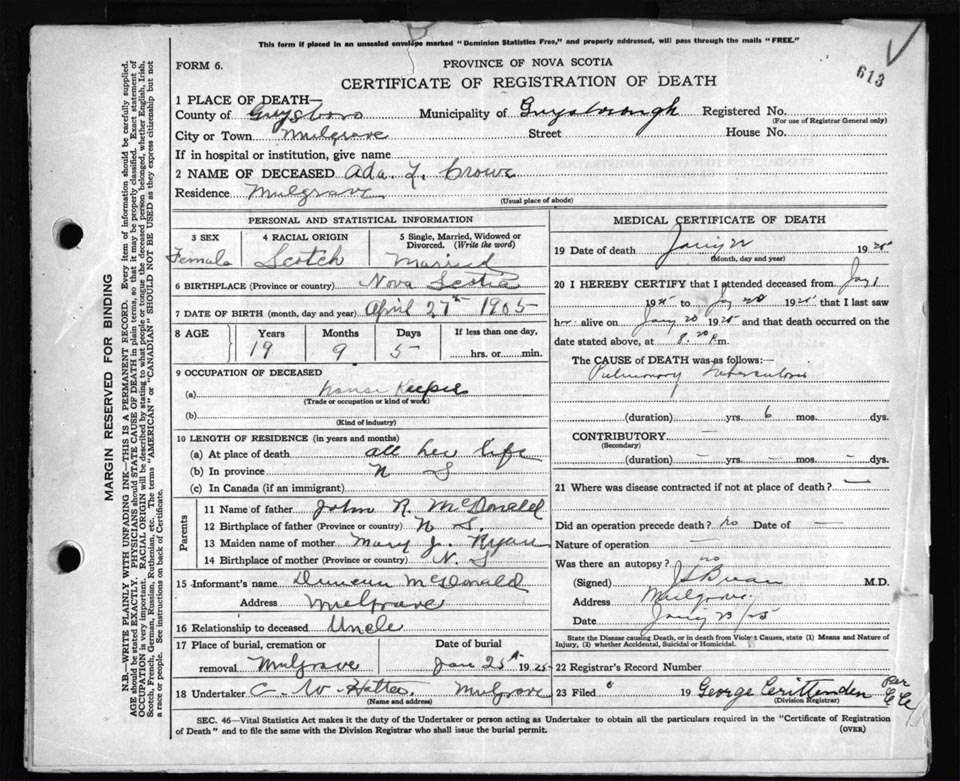 This form if placed in an unsealed envelope marked "Dominion Statistics Free," and properly addressed, will pass through the mails "FREE."
613
FORM 6.
PROVINCE OF NOVA SCOTIA
CERTIFICATE OF REGISTRATION OF DEATH
1 PLACE OF DEATH—
County of Guysboro Municipality of Guysborough Registered No.
(For use of Registrar General only)
City or Town Mulgrave Street House No.
If in hospital or institution, give name
2 NAME OF DECEASED Ada. Crowe
Residence Mulgrave
(Usual place of abode)
PERSONAL AND STATISTICAL INFORMATION
3 SEX 4 RACIAL ORIGIN 5 Single, Married, Widowed or Divorced. (Write the word)
Female Scotch Married
6 BIRTHPLACE (Province or country) Nova Scotia
7 DATE OF BIRTH (month, day and year) April 27th 1905
8 AGE Years Months Days If less than one day,
19 9 5 hrs. or min.
9 OCCUPATION OF DECEASED
(a) House Keeper
(Trade or occupation or kind of work)
(b)
(Kind of industry)
10 LENGTH OF RESIDENCE (in years and months)
(a) At place of death all her life
(b) In province N S
(c) In Canada (if an immigrant)
Parents
11 Name of father John R. McDonald
12 Birthplace of father (Province or country) N S.
13 Maiden name of mother Mary J. Ryan
14 Birthplace of mother (Province or country) N. S
15 Informant's name Duncan McDonald
Address Mulgrave
16 Relationship to deceased Uncle
17 Place of burial, cremation or Date of burial
removal Mulgrave Jan 25th 1925
18 Undertaker C. W. Hattes. Mulgrave
(Name and address)
MEDICAL CERTIFICATE OF DEATH
19 Date of death 19
(Month, day and year)
20 I HEREBY CERTIFY that I attended deceased from Jany 1
19 to Jany 20 19 that I last saw
her alive on Jany 20 19 and that death occurred on the
date stated above, at 8.20 P.m.
The CAUSE of DEATH was as follows:—
Pulmonary Tuberculosis
(duration) yrs. 6 mos. dys.
CONTRIBUTORY —
(Secondary)
(duration) — yrs. — mos. — dys.
21 Where was disease contracted if not at place of death? —
Did an operation precede death? no Date of —
Nature of operation —
Was there an autopsy? no
(Signed) M.D.
Address Mulgrave.
Date Jany 23/25
State the Disease causing Death, or in death from Violent Causes, state (1) Means and Nature of Injury, (2) whether Accidental, Suicidal or Homicidal.
22 Registrar's Record Number
23 Filed 19 George Crittenden Per
(Division Registrar)
SEC. 46—Vital Statistics Act makes it the duty of the Undertaker or person acting as Undertaker to obtain all the particulars required in the "Certificate of Registration
of Death" and to file the same with the Division Registrar who shall issue the burial permit.
(OVER)
MARGIN RESERVED FOR BINDING
N.B.—WRITE PLAINLY WITH UNFADING INK—THIS IS A PERMANENT RECORD. Every item of information should be carefully supplied.
AGE should be stated EXACTLY. PHYSICIANS should STATE CAUSE OF DEATH in plain terms, so that it may be properly classified. Exact statement of
OCCUPATION is very important. RACIAL ORIGIN will be described by stating to what people or tongue the deceased person belonged, whether English, Irish,
Scotch, French, German, Russian, Ruthenian, etc. The terms "AMERICAN" or "CANADIAN" SHOULD NOT BE USED as they express citizenship but not
a race or people. See instructions on back of Certificate.